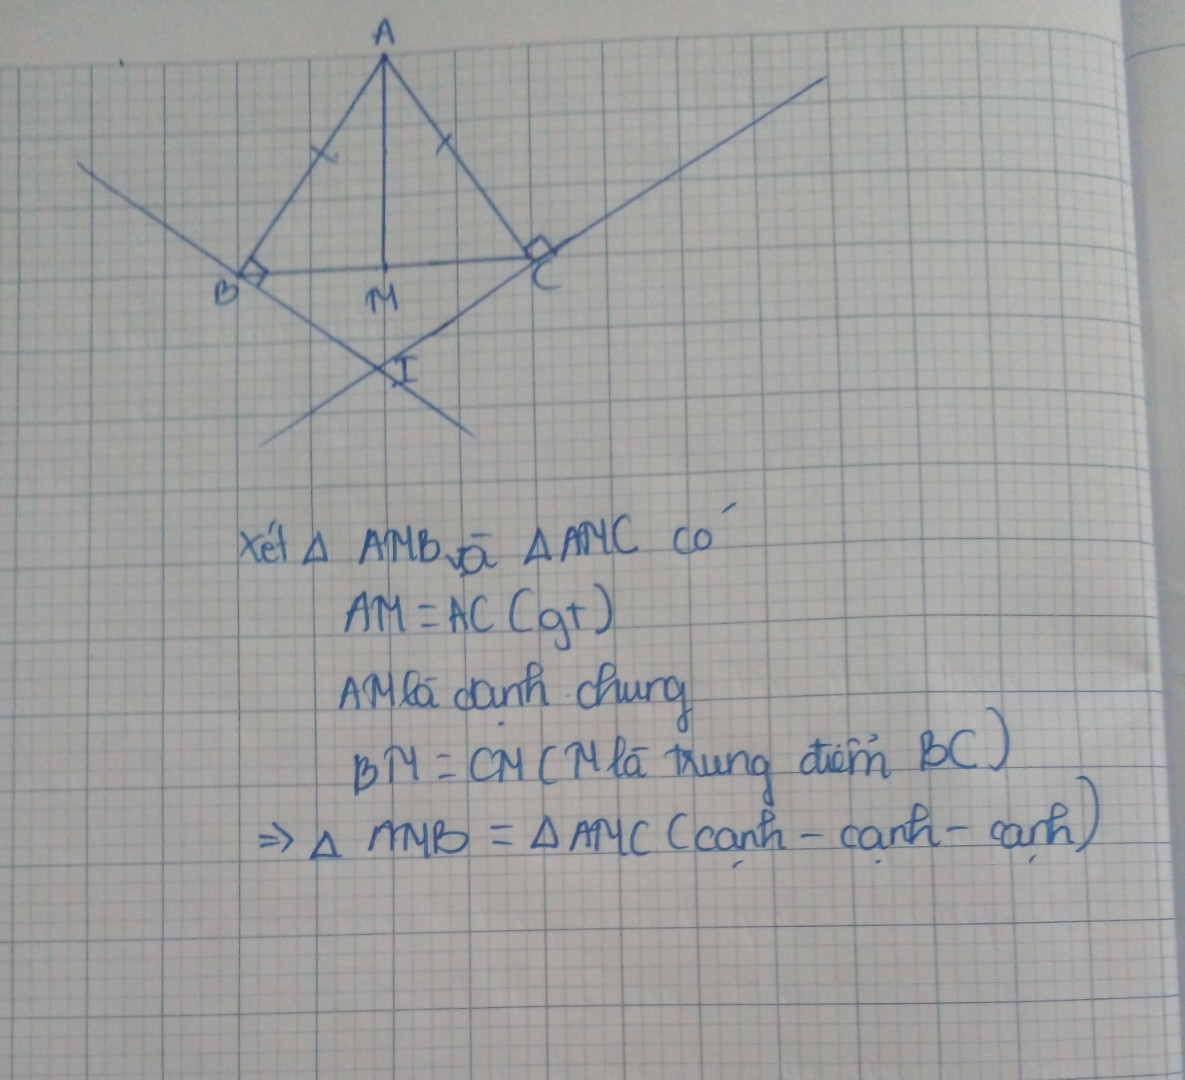 A
B
M
C
I
Xét Δ AMB và Δ AMC có
AM = AC (gt)
AM là cạnh chung
BM = CM (M là trung điểm BC)
=> Δ AMB = Δ AMC (cạnh - cạnh - cạnh)